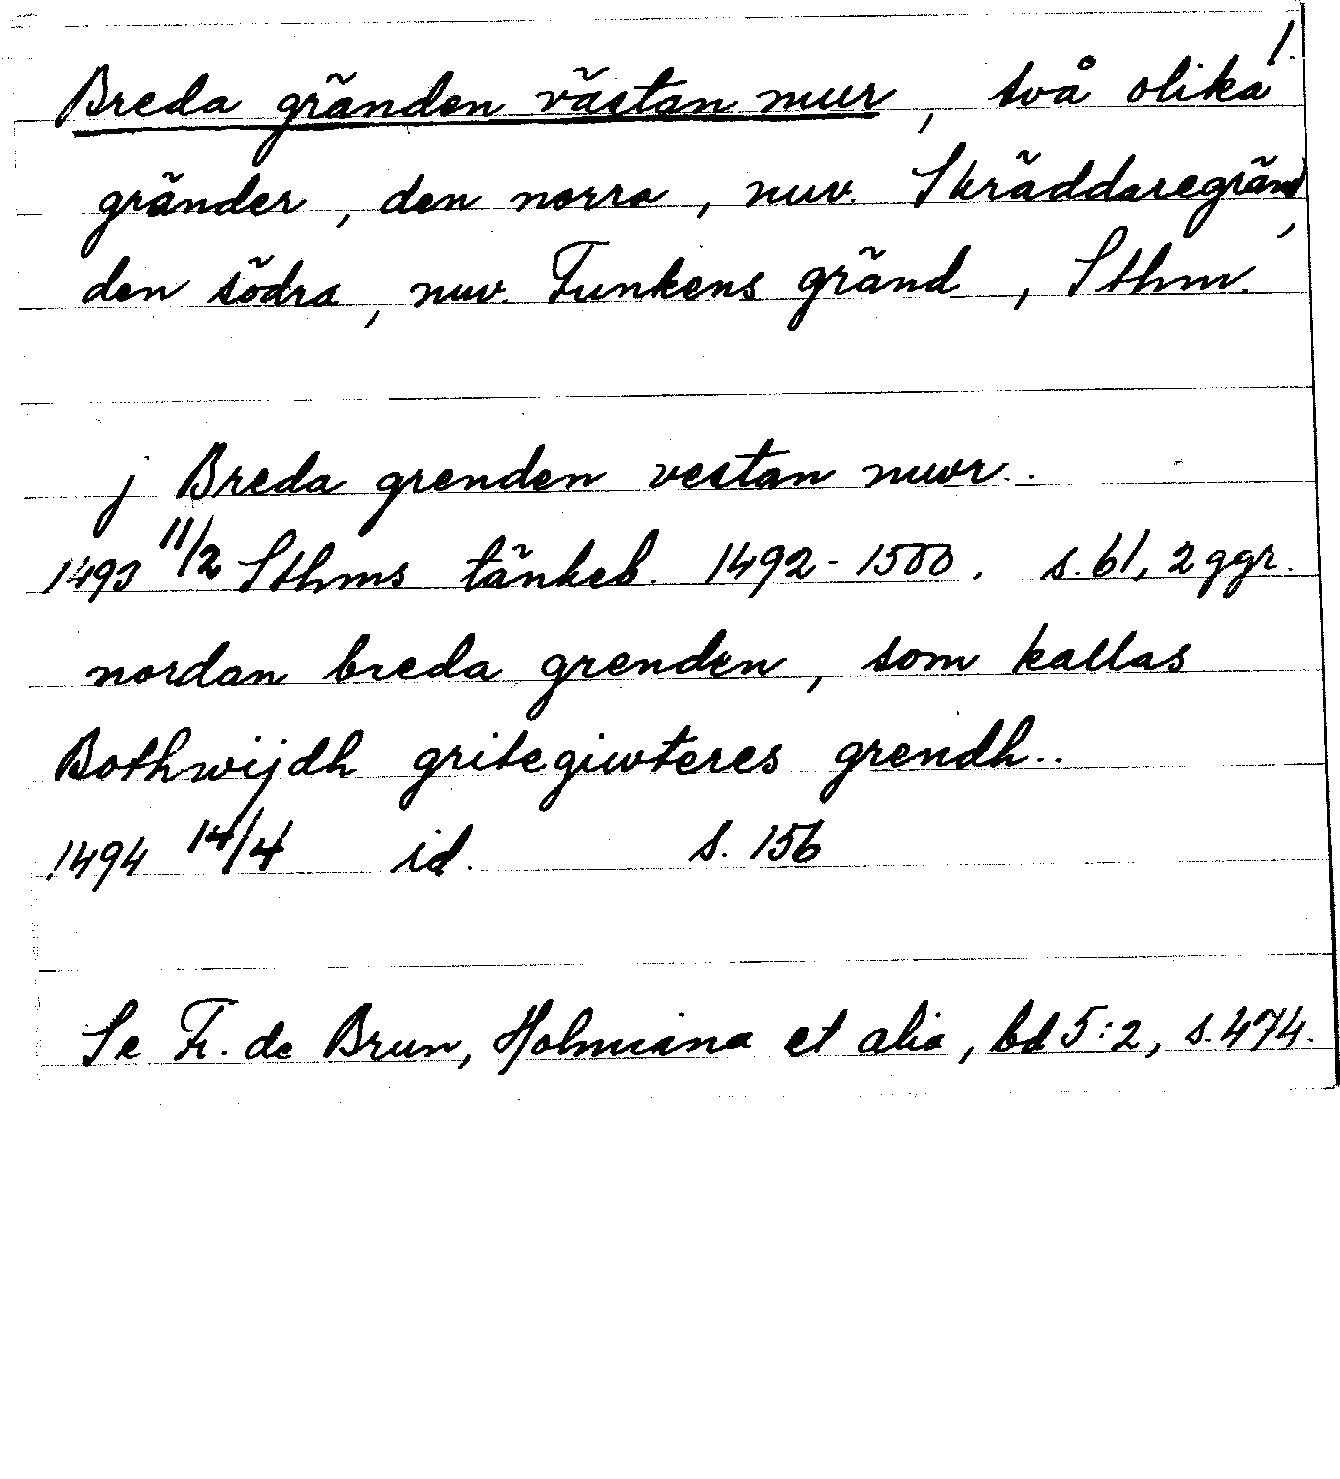 1.
Breda gränden västan mur, två olika
gränder, den norra, nuv. Skräddaregränd,
den södra, nuv. Funkens gränd, Sthm.
j Breda grenden vestan muvr..
1493 11/2 Sthms tänkeb. 1492-1500. s. 61, 2 ggr.
nordan breda grenden, som kallas
Bothwijdh gritegiwteres grendh..
1494 14/4 id. s. 156
Se Fr. de Brun, Holmiana et alia, bd 5:2, s. 474.